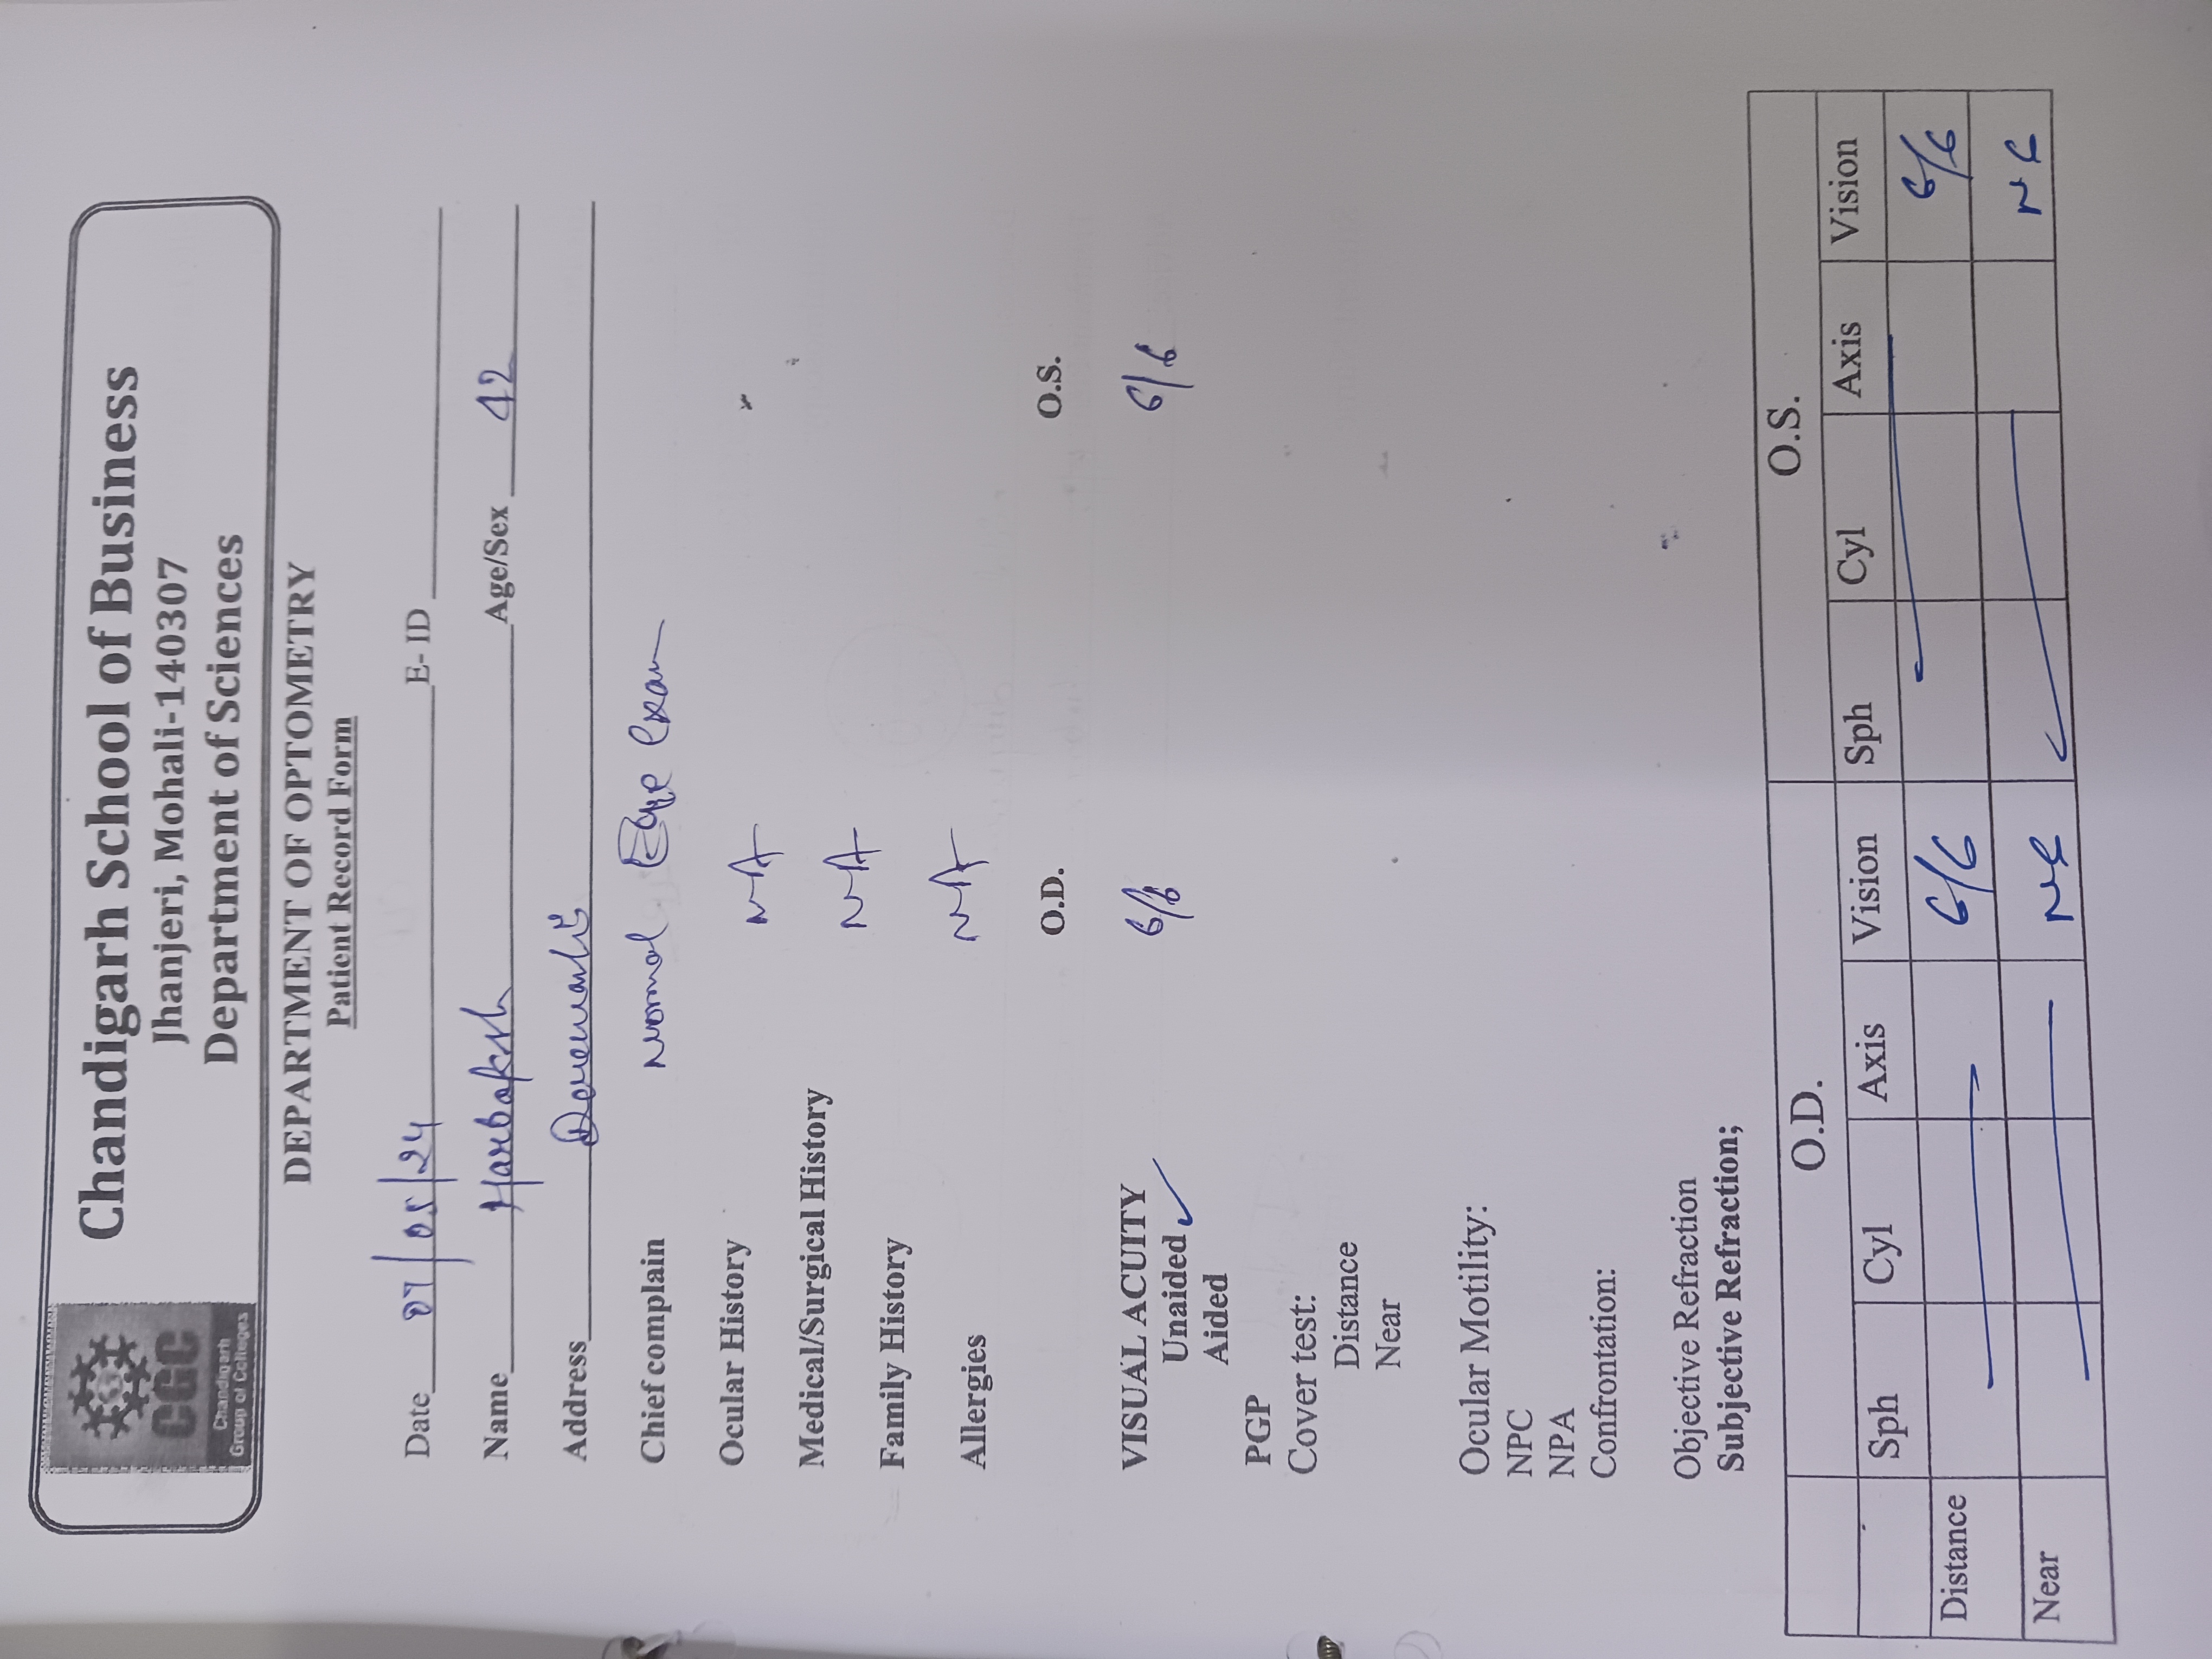 CGC
Chandigarh
Group of Colleges
Chandigarh School of Business
Jhanjeri, Mohali-140307
Department of Sciences
DEPARTMENT OF OPTOMETRY
Patient Record Form
Date 07/05/24 E- ID
Name Harbaksh Age/Sex 42
Address
Chief complain Normal Eye exam
Ocular History NA
Medical/Surgical History NA
Family History NA
Allergies
O.D. O.S.
VISUAL ACUITY 6/6 6/6
Unaided ✓
Aided
PGP
Cover test:
Distance
Near
Ocular Motility:
NPC
NPA
Confrontation:
Objective Refraction
Subjective Refraction;
O.D. O.S.
Sph Cyl Axis Vision Sph Cyl Axis Vision
Distance 6/6 6/6
Near N6 N6